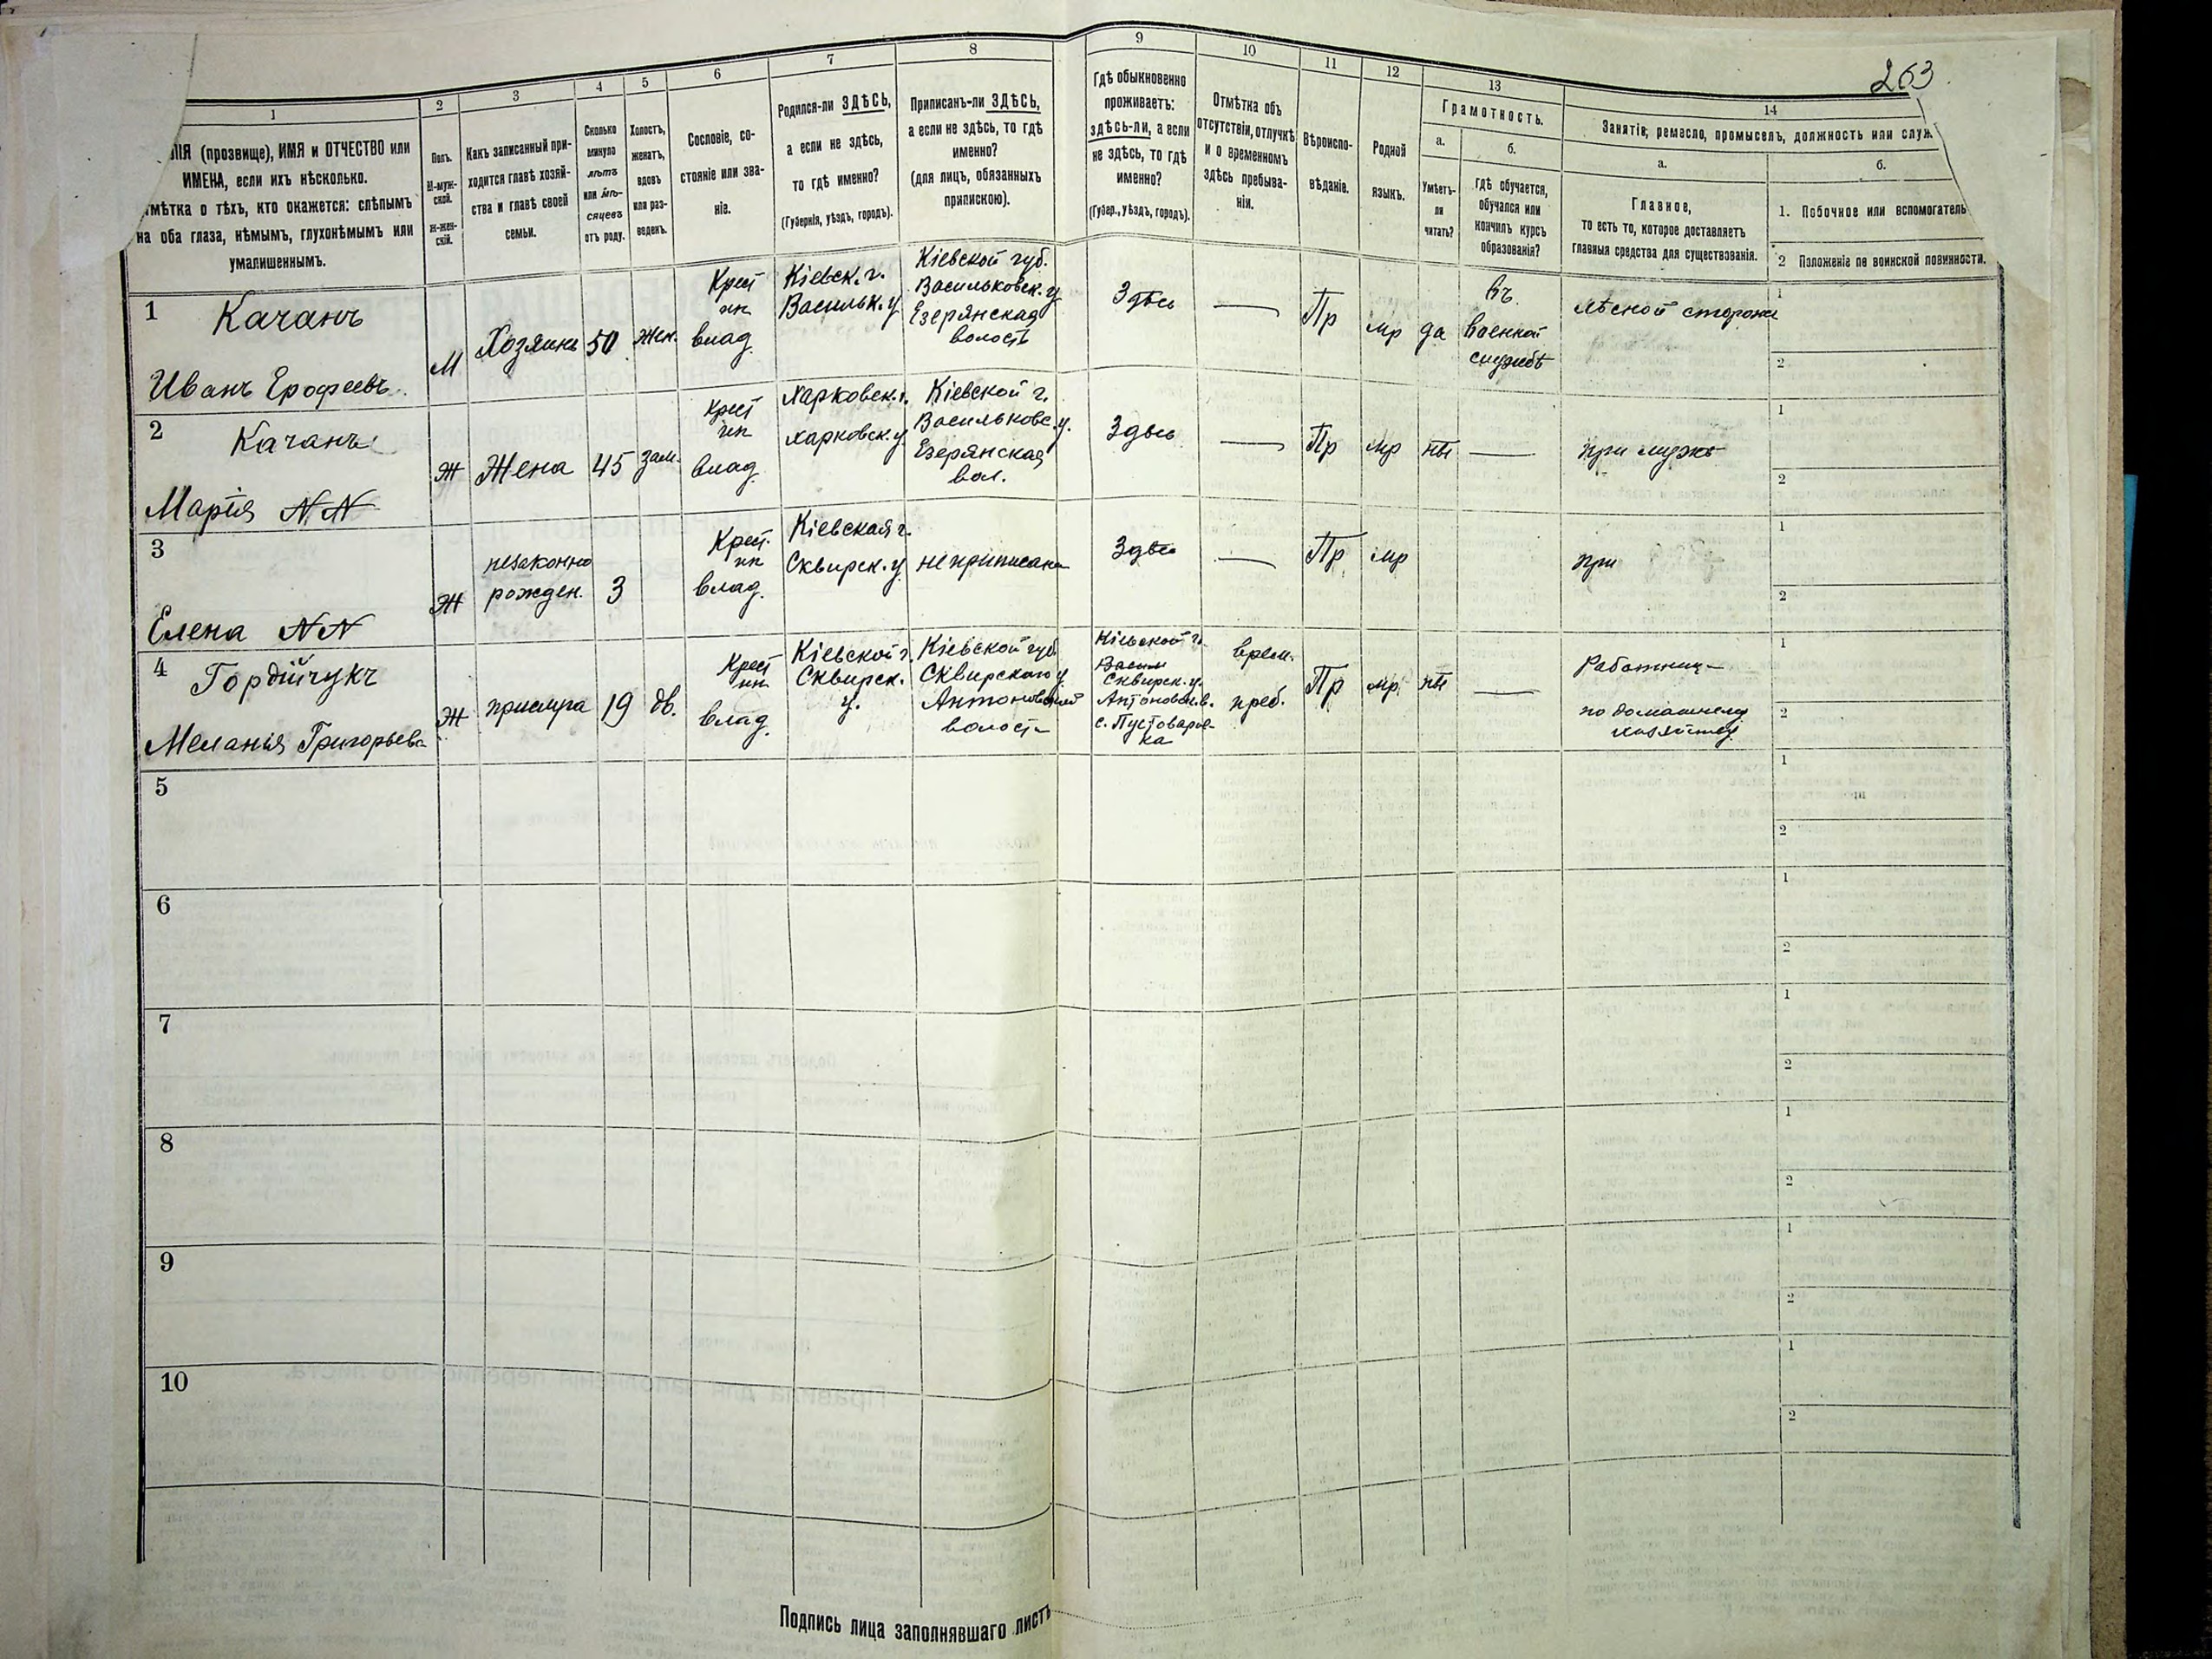 263
1
2
3
4
5
6
7
8
9
10
11
12
13
14
ЛІЯ (прозвище), ИМЯ и ОТЧЕСТВО или
ИМЕНА, если ихъ нѣсколько.
тмѣтка о тѣхъ, кто окажется: слѣпымъ
на оба глаза, нѣмымъ, глухонѣмымъ или
умалишеннымъ.
Полъ.
М-муж-
ской.
Ж-жен-
скій.
Какъ записанный при-
ходится главѣ хозяй-
ства и главѣ своей
семьи.
Сколько
минуло
лѣтъ
или мѣ-
сяцевъ
отъ роду.
Холостъ,
женатъ,
вдовъ
или раз-
веденъ.
Сословіе, со-
стояніе или зва-
ніе.
Родился-ли ЗДѢСЬ,
а если не здѣсь,
то гдѣ именно?
(Губернія, уѣздъ, городъ).
Приписанъ-ли ЗДѢСЬ,
а если не здѣсь, то гдѣ
именно?
(для лицъ, обязанныхъ
припискою).
Гдѣ обыкновенно
проживаетъ:
здѣсь-ли, а если
не здѣсь, то гдѣ
именно?
(Губер., уѣздъ, городъ).
Отмѣтка объ
отсутствіи, отлучкѣ
и о временномъ
здѣсь пребыва-
ніи.
Вѣроиспо-
вѣданіе.
Родной
языкъ.
Грамотность.
а.
Умѣетъ-
ли
читать?
б.
гдѣ обучается,
обучался или
кончилъ курсъ
образованія?
Занятіе, ремесло, промыселъ, должность или служ
а.
Главное,
то есть то, которое доставляетъ
главныя средства для существованія.
б.
1. Побочное или вспомогатель
2 Положеніе по воинской повинности.
1
Качанъ
Иванъ Ерофеевъ
М
Хозяинъ
50
жен.
Крест
ин
влад.
Кіевск. г.
Васильк. у.
Кіевской губ.
Васильковск. у.
Езерянская
волость
Здѣсь
—
Пр
мр
да
въ
военной
службѣ
лѣсной сторожъ
1
2
2
Качанъ
Марія NN
Ж
Жена
45
зам.
Крест
ин
влад.
Харковск. г.
Харковск. у.
Кіевской г.
Васильковс. у.
Езерянская
вол.
Здѣсь
—
Пр
мр
нѣт
—
при мужѣ
1
2
3
Елена NN
Ж
незаконно
рожден.
3
Крест.
ин
влад.
Кіевская г.
Сквирск. у.
не приписана
Здѣсь
—
Пр
мр
при
1
2
4
Гордійчукъ
Меланія Григорьева
Ж
прислуга
19
дѣв.
Крест
ин
влад.
Кіевской г.
Сквирск.
у.
Кіевской губ.
Сквирскаго у.
Антоновской
волости
Кіевской г.
Васил
Сквирск. у.
Антоновск. в.
с. Пустоваров-
ка
врем.
преб.
Пр
мр
нѣт
—
Работниц-
по домашнему
хозяйству
1
2
5
1
2
6
1
2
7
1
2
8
1
2
9
1
2
10
1
2
Подпись лица заполнявшаго листъ